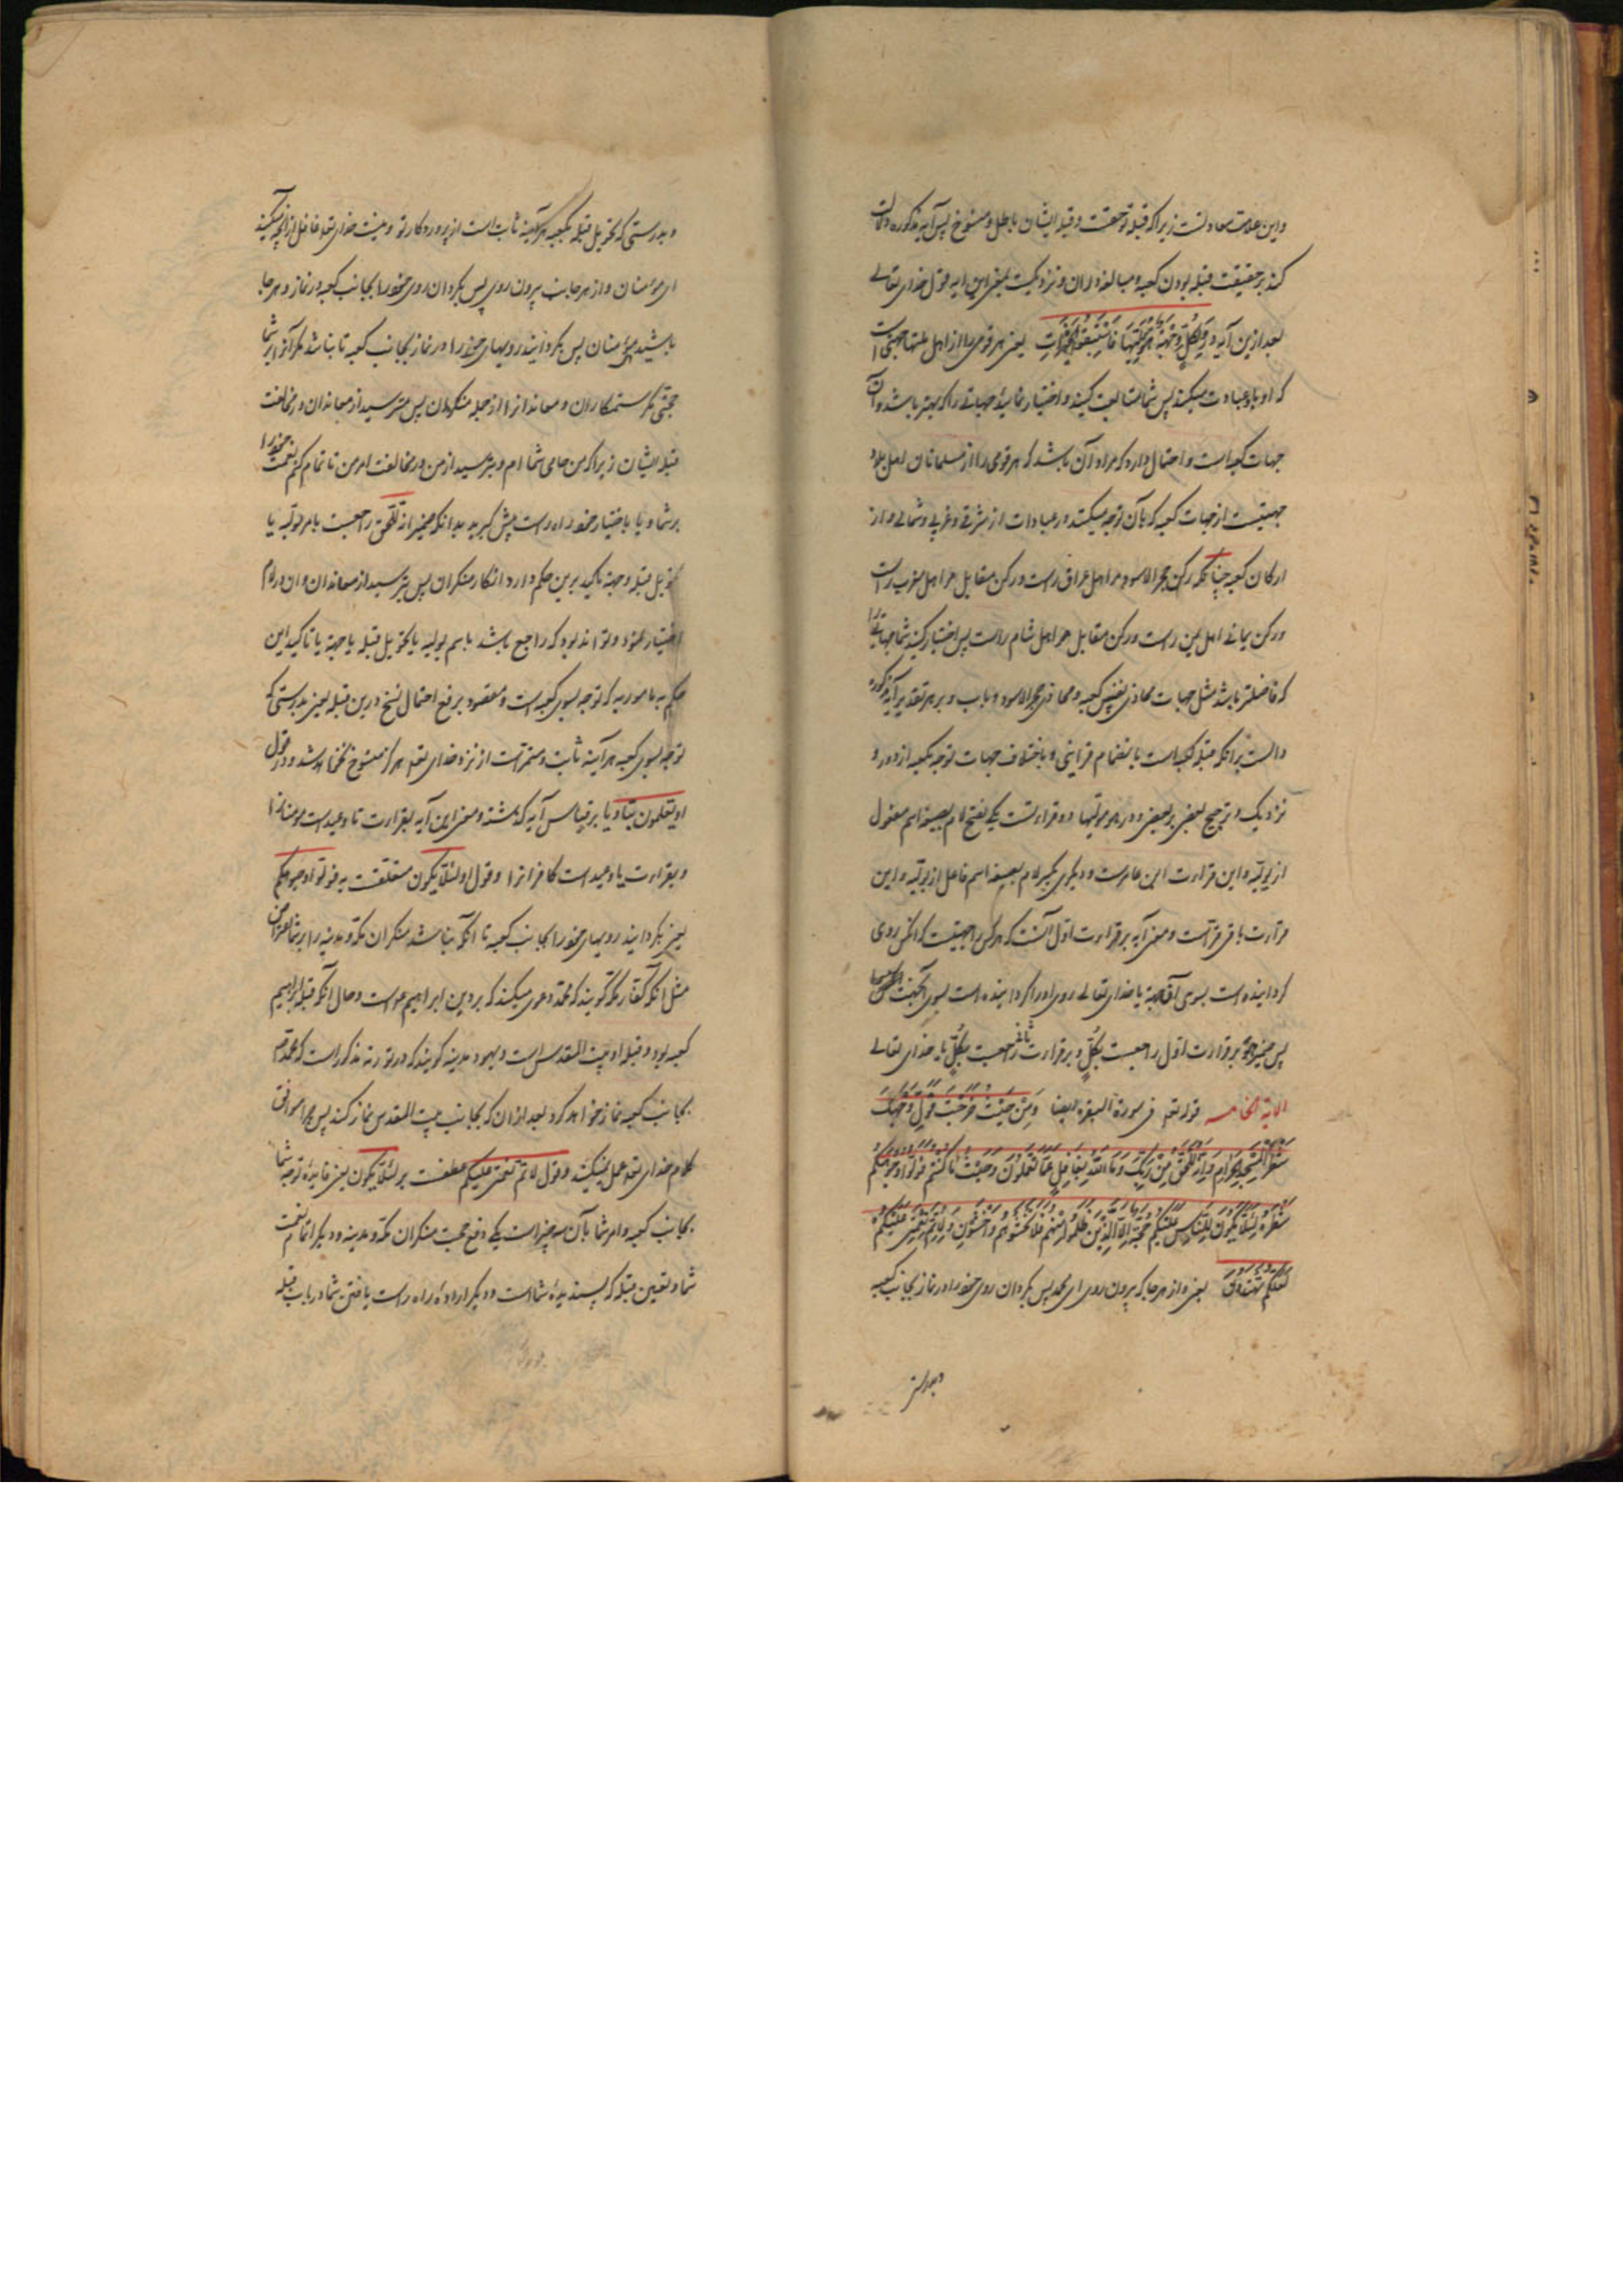 و این علامت معاداتست زیرا که قبله تو حقست و قبله ایشان باطل و منسوخ پس آیه مذکوره دلالت
کند بر حقیقت قبله بودن کعبه و مبالغه در آن و نزدیکست بمعنی این آیه قول خدای تعالی
بعد ازین آیه وَ لِکُلٍّ وِجْهَةٌ هُوَ مُوَلِّیهَا فَاسْتَبِقُوا الْخَیْرَاتِ یعنی هر قومی را از اهل ملتها جهتی است
که او باو عبادت میکند پس شما متابعت کنید و اختیار نمایید جهاتی را که بهتر باشد و آن
جهات کعبه است و احتمال دارد که مراد آن باشد که هر قومی را از مسلمانان اهل بلاد
جهتیست از جهات کعبه که بآن توجه میکنند در عبادات از شرقی و غربی و شمالی و از
ارکان کعبه چنانکه رکن حجر الاسود مر اهل عراق راست و رکن مقابل مر اهل مغرب راست
و رکن یمانی اهل یمن راست و رکن مقابل مر اهل شام راست پس اختیار کنید شما جهاتی را
که فاضلتر باشد مثل جهات محاذی نفس کعبه و محاذی حجر الاسود و باب و بر هر تقدیر آیه مذکوره
دالست بر آنکه قبله کعبه است بانضمام قراینی و باختلاف جهات توجه بکعبه از دور و
نزدیک و ترجیح بعضی بر بعضی و در هو مولیها دو قراءتست یکی بفتح لام بصیغه اسم مفعول
از تولیه و این قراءت ابن عامرست و دیگری بکسر لام بصیغه اسم فاعل از تولیه و این
قراءت باقی قراست و معنی آیه بر قراءت اول آنست که هر کس را جهتیست که آنکس روی
گردانیده است بسوی آن جهة یا خدای تعالی روی او را گردانیده است بسوی آنجهت
پس ضمیر هو بر قراءت اول راجعست بکلٍّ و بر قراءت ثانی راجعست بکلٍّ یا خدای تعالی
الایة الخامسه قوله تعه فی سورة البقره ایضا وَمِنْ حَیْثُ خَرَجْتَ فَوَلِّ وَجْهَکَ
شَطْرَ الْمَسْجِدِ الْحَرَامِ وَاِنَّهُ لَلْحَقُّ مِنْ رَبِّکَ وَمَا اللّهُ بِغَافِلٍ عَمَّا تَعْمَلُونَ وَحَیْثُ مَا کُنْتُمْ فَوَلُّوا وُجُوهَکُمْ
شَطْرَهُ لِئَلَّا یَکُونَ لِلنَّاسِ عَلَیْکُمْ حُجَّةٌ اِلَّا الَّذِینَ ظَلَمُوا مِنْهُمْ فَلَا تَخْشَوْهُمْ وَاخْشَوْنِی وَلِاُتِمَّ نِعْمَتِی عَلَیْکُمْ
لَعَلَّکُمْ تَهْتَدُونَ یعنی و از هر جا که بیرون روی ای محمد پس بگردان روی خود را در نماز بجانب کعبه
و بدرستی
و بدرستی که تحویل قبله بکعبه هر آینه ثابت است از پروردکار تو و نیست خدای تعه غافل از آنچه میکنید
ای مؤمنان و از هر جانب بیرون روی پس بگردان روی خود را بجانب کعبه در نماز و هر جا
باشید ای مؤمنان پس بگردانید رویهای خود را در نماز بجانب کعبه تا نباشد مکر آنرا بر شما
حجتی مگر ستمکاران و معاندانرا از جمله منکران پس مترسید از معاندان در مخالفت
قبله ایشان زیرا که من حامی شما ام و بترسید از من در مخالفت امر من تا تمام کنم نعمت خود را
بر شما و یا باختیار خود راه راست پیش گیرید بدانکه ضمیر انه للحق راجعست بامر تولیه یا
تحویل قبله و جهة تاکید برین حکم دارد انکار منکران پس بترسید از معاندان و ان در لام
اختیار نمود و تواند بود که راجع باشد باسم تولیه یا تحویل قبله یا جهة یا تاکید این
حکم به مامور به که توجه بسوی کعبه است و مقصود برفع احتمال نسخ درین قبله یعنی بدرستی که
توجه بسوی کعبه هر آینه ثابت و مستمرست از نزد خدای تعه و هرگز منسوخ نخواهد شد و در قول
او یعلمون بتا و یا بر قیاس آیه گذشته و معنی این آیه بقراءت تا وعیدست مومنانرا
و بقراءت یا وعیدست کافرانرا و قول او لئلا یکون متعلقست به فولوا وجوهکم
یعنی بگردانید رویهای خود را بجانب کعبه تا آنکه نباشد منکران مکه و مدینه را بر شما اعتراض
مثل آنکه کفار مکه گویند که محمد دعوی میکند که بر دین ابراهیم است و حال آنکه قبله ابراهیم
کعبه بود و قبله او بیت المقدس است و یهود مدینه گویند که در تورته مذکور است که محمد
بجانب کعبه نماز خواهد کرد بعد از آن که بجانب بیت المقدس نماز کند پس چرا موافق
کلام خدای تعه عمل نمیکنید و قول لاتم نعمتی علیکم عطفست بر لئلا یکون یعنی فایدهٔ توجه شما
بجانب کعبه و امر شما بآن سه چیز است یکی دفع حجت منکران مکه و مدینه و دیگر اتمام نعمت
شما و تعیین قبله که پسندیدهٔ شماست و دیگر ارادهٔ راه راست یافتن شما در باب قبله